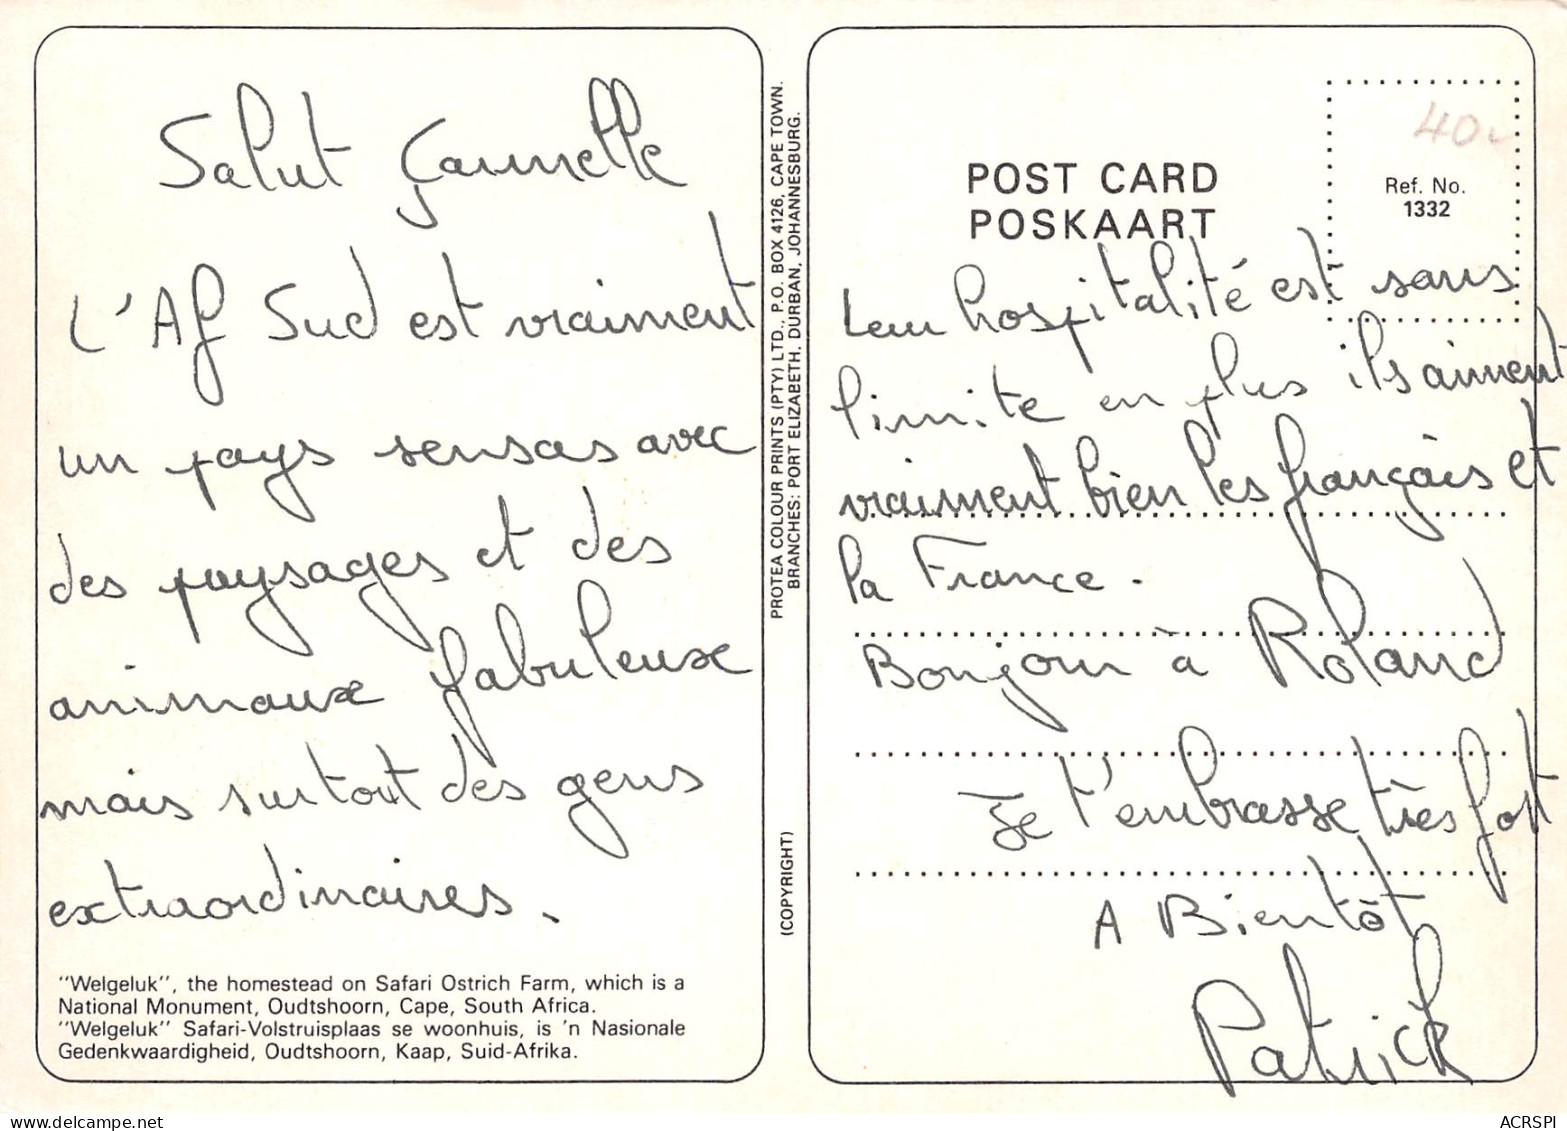 Salut
L'Af Sud est vraiment
un pays sensas avec
des paysages et des
animaux fabuleuse
mais surtout des gens
extraordinaires.
"Welgeluk", the homestead on Safari Ostrich Farm, which is a
National Monument, Oudtshoorn, Cape, South Africa.
"Welgeluk" Safari-Volstruisplaas se woonhuis, is 'n Nasionale
Gedenkwaardigheid, Oudtshoorn, Kaap, Suid-Afrika.
PROTEA COLOUR PRINTS (PTY) LTD., P.O. BOX 4126, CAPE TOWN.
BRANCHES: PORT ELIZABETH, DURBAN, JOHANNESBURG.
(COPYRIGHT)
40
Ref. No.
1332
POST CARD
POSKAART
Leur hospitalité est sans
limite en plus ils aiment
vraiment bien les français et
la France.
Bonjour à Roland
Je t'embrasse très fort
A Bientôt
Patrick
ACRSPI